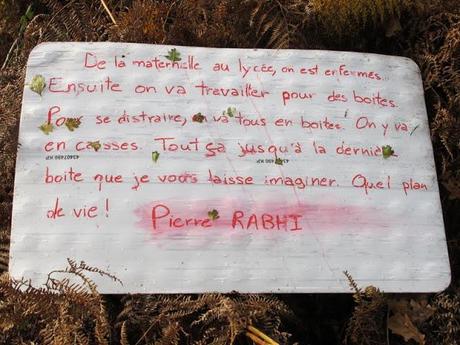 De la maternelle au lycée, on est enfermés...
Ensuite on va travailler pour des boites.
Pour se distraire, on va tous en boites. On y va
en caisses. Tout ça jusqu'à la dernière
boite que je vous laisse imaginer. Quel plan
de vie !
Pierre RABHI